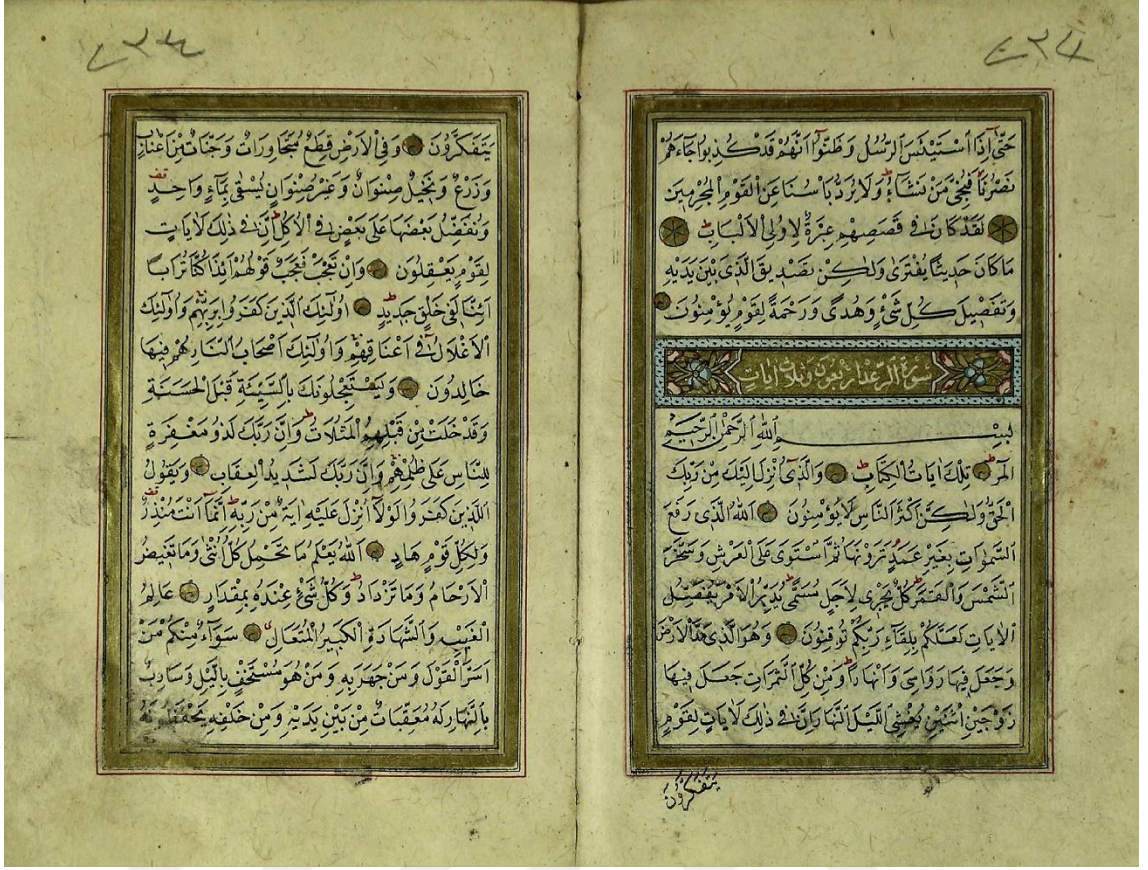 حَتّٰى اِذَا اسْتَيْئَسَ الرُّسُلُ وَظَنُّوا اَنَّهُمْ قَدْ كُذِبُوا جَاءَهُمْ
نَصْرُنَا فَنُجِّىَ مَنْ نَشَاءُ وَلَا يُرَدُّ بَاْسُنَا عَنِ الْقَوْمِ الْمُجْرِمِينَ
لَقَدْ كَانَ فِى قَصَصِهِمْ عِبْرَةٌ لِاُولِى الْاَلْبَابِ
مَا كَانَ حَدِيثًا يُفْتَرٰى وَلٰكِنْ تَصْدِيقَ الَّذِى بَيْنَ يَدَيْهِ
وَتَفْصِيلَ كُلِّ شَىْءٍ وَهُدًى وَرَحْمَةً لِقَوْمٍ يُؤْمِنُونَ
سورة الرعد اربعون وثلاث ايات
بِسْمِ اللّٰهِ الرَّحْمٰنِ الرَّحِيمِ
الٓمٓرٰ تِلْكَ اٰيَاتُ الْكِتَابِ وَالَّذِى اُنْزِلَ اِلَيْكَ مِنْ رَبِّكَ
الْحَقُّ وَلٰكِنَّ اَكْثَرَ النَّاسِ لَا يُؤْمِنُونَ اَللّٰهُ الَّذِى رَفَعَ
السَّمٰوَاتِ بِغَيْرِ عَمَدٍ تَرَوْنَهَا ثُمَّ اسْتَوٰى عَلَى الْعَرْشِ وَسَخَّرَ
الشَّمْسَ وَالْقَمَرَ كُلٌّ يَجْرِى لِاَجَلٍ مُسَمًّى يُدَبِّرُ الْاَمْرَ يُفَصِّلُ
الْاٰيَاتِ لَعَلَّكُمْ بِلِقَاءِ رَبِّكُمْ تُوقِنُونَ وَهُوَ الَّذِى مَدَّ الْاَرْضَ
وَجَعَلَ فِيهَا رَوَاسِىَ وَاَنْهَارًا وَمِنْ كُلِّ الثَّمَرَاتِ جَعَلَ فِيهَا
زَوْجَيْنِ اثْنَيْنِ يُغْشِى اللَّيْلَ النَّهَارَ اِنَّ فِى ذٰلِكَ لَاٰيَاتٍ لِقَوْمٍ
يَتَفَكَّرُونَ
يَتَفَكَّرُونَ وَفِى الْاَرْضِ قِطَعٌ مُتَجَاوِرَاتٌ وَجَنَّاتٌ مِنْ اَعْنَابٍ
وَزَرْعٌ وَنَخِيلٌ صِنْوَانٌ وَغَيْرُ صِنْوَانٍ يُسْقٰى بِمَاءٍ وَاحِدٍ
وَنُفَضِّلُ بَعْضَهَا عَلٰى بَعْضٍ فِى الْاُكُلِ اِنَّ فِى ذٰلِكَ لَاٰيَاتٍ
لِقَوْمٍ يَعْقِلُونَ وَاِنْ تَعْجَبْ فَعَجَبٌ قَوْلُهُمْ اَئِذَا كُنَّا تُرَابًا
اَئِنَّا لَفِى خَلْقٍ جَدِيدٍ اُولٰئِكَ الَّذِينَ كَفَرُوا بِرَبِّهِمْ وَاُولٰئِكَ
الْاَغْلَالُ فِى اَعْنَاقِهِمْ وَاُولٰئِكَ اَصْحَابُ النَّارِ هُمْ فِيهَا
خَالِدُونَ وَيَسْتَعْجِلُونَكَ بِالسَّيِّئَةِ قَبْلَ الْحَسَنَةِ
وَقَدْ خَلَتْ مِنْ قَبْلِهِمُ الْمَثُلَاتُ وَاِنَّ رَبَّكَ لَذُو مَغْفِرَةٍ
لِلنَّاسِ عَلٰى ظُلْمِهِمْ وَاِنَّ رَبَّكَ لَشَدِيدُ الْعِقَابِ وَيَقُولُ
الَّذِينَ كَفَرُوا لَوْلَا اُنْزِلَ عَلَيْهِ اٰيَةٌ مِنْ رَبِّهِ اِنَّمَا اَنْتَ مُنْذِرٌ
وَلِكُلِّ قَوْمٍ هَادٍ اَللّٰهُ يَعْلَمُ مَا تَحْمِلُ كُلُّ اُنْثٰى وَمَا تَغِيضُ
الْاَرْحَامُ وَمَا تَزْدَادُ وَكُلُّ شَىْءٍ عِنْدَهُ بِمِقْدَارٍ عَالِمُ
الْغَيْبِ وَالشَّهَادَةِ الْكَبِيرُ الْمُتَعَالِ سَوَاءٌ مِنْكُمْ مَنْ
اَسَرَّ الْقَوْلَ وَمَنْ جَهَرَ بِهِ وَمَنْ هُوَ مُسْتَخْفٍ بِالَّيْلِ وَسَارِبٌ
بِالنَّهَارِ لَهُ مُعَقِّبَاتٌ مِنْ بَيْنِ يَدَيْهِ وَمِنْ خَلْفِهِ يَحْفَظُونَهُ